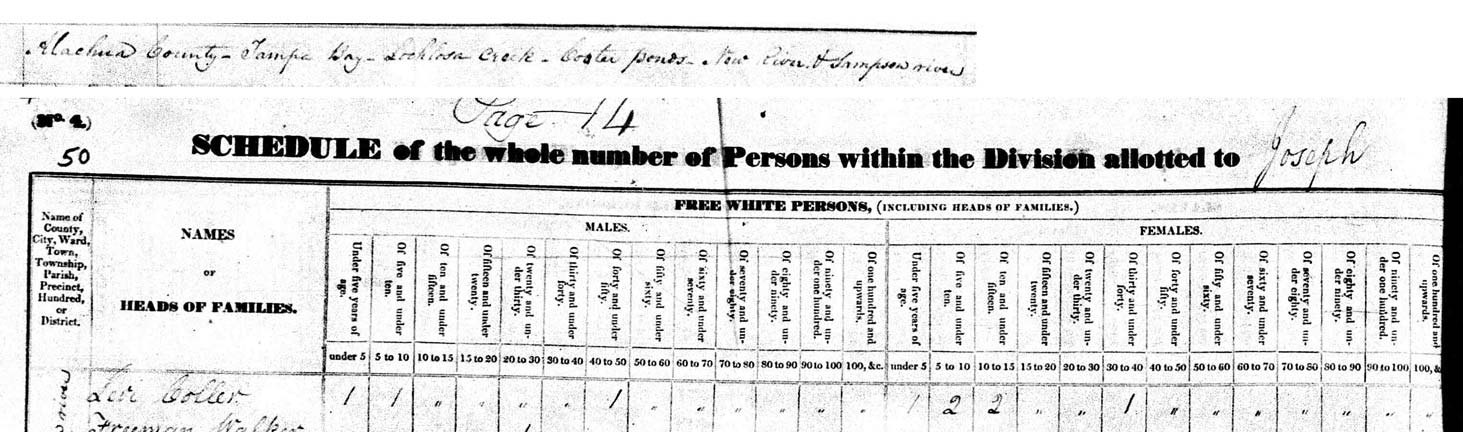 Alachua County - Tampa Bay - Lochlosa Creek - Coster ponds - New River & Sampson river
Page 14
(No. 4.)
50
SCHEDULE of the whole number of Persons within the Division allotted to Joseph
Name of County, City, Ward, Town, Township, Parish, Precinct, Hundred, or District.
NAMES
OR
HEADS OF FAMILIES.
FREE WHITE PERSONS, (INCLUDING HEADS OF FAMILIES.)
MALES.
FEMALES.
Under five years of age.
Of five and under ten.
Of ten and under fifteen.
Of fifteen and under twenty.
Of twenty and under thirty.
Of thirty and under forty.
Of forty and under fifty.
Of fifty and under sixty.
Of sixty and under seventy.
Of seventy and under eighty.
Of eighty and under ninety.
Of ninety and under one hundred.
Of one hundred and upwards.
Under five years of age.
Of five and under ten.
Of ten and under fifteen.
Of fifteen and under twenty.
Of twenty and under thirty.
Of thirty and under forty.
Of forty and under fifty.
Of fifty and under sixty.
Of sixty and under seventy.
Of seventy and under eighty.
Of eighty and under ninety.
Of ninety and under one hundred.
Of one hundred and upwards.
under 5 5 to 10 10 to 15 15 to 20 20 to 30 30 to 40 40 to 50 50 to 60 60 to 70 70 to 80 80 to 90 90 to 100 100, &c. under 5 5 to 10 10 to 15 15 to 20 20 to 30 30 to 40 40 to 50 50 to 60 60 to 70 70 to 80 80 to 90 90 to 100 100, &
Levi Coller 1 1 " " " " 1 " " " " " " 1 2 2 " " 1 " " " " " " "
Freeman Walker 1
river